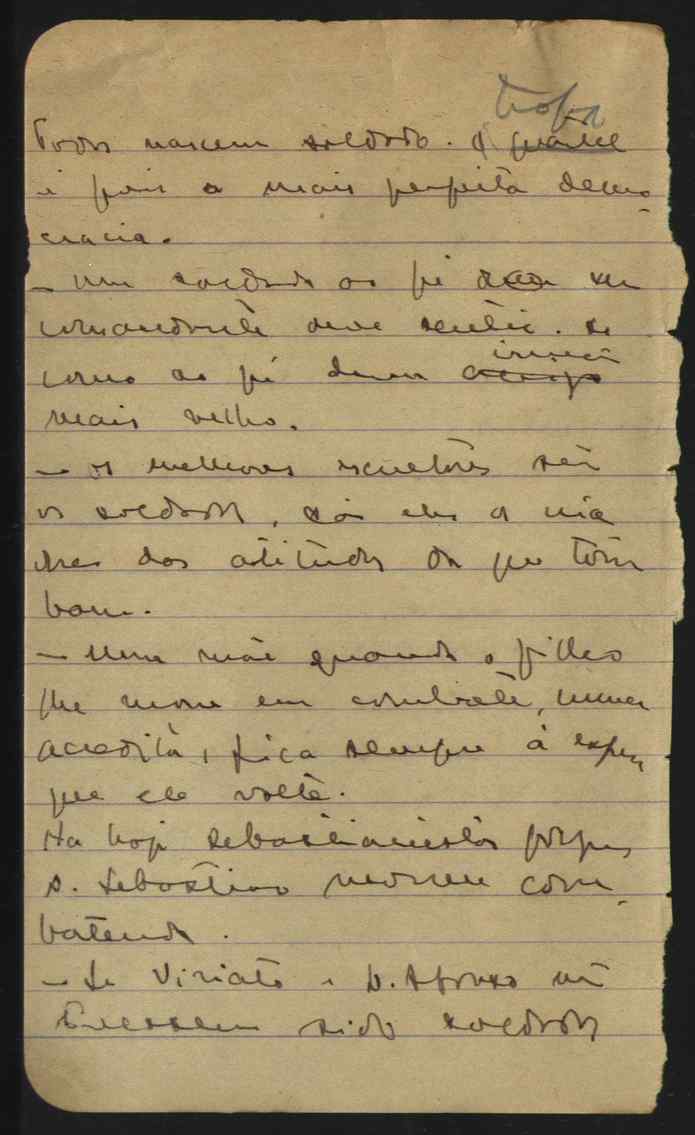 tropa
Todos nascem soldado. A quartel
é pois a mais perfeita demo-
cracia.
- um soldado ao pé do seu
comandante deve sentir-se
como ao pé dum irmão
mais velho.
- os melhores escultores são
os soldados, são eles os
das atitudes em que tom
bam.
- Uma mãe quando o filho
lhe morre em combate, nunca
acredita, fica sempre à espera
que ele volte.
Ha hoje sebastianistas porque
D. Sebastião morreu com-
batendo.
- Se Viriato e D. Afonso não
tivessem sido soldados